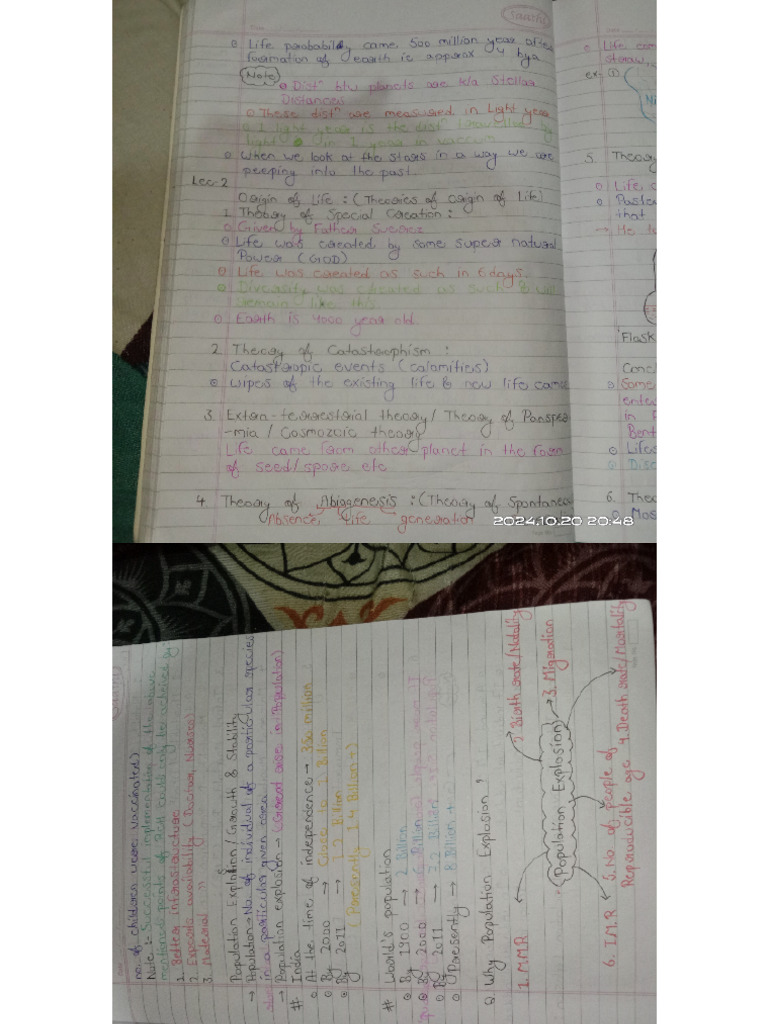 Saathi
Life probability came 500 million year after
formation of earth ie approx 4 bya
Note
Distn btw planets are k/a Stellar
Distances
These distn are measured in Light year
1 light year is the distn travelled by
light in 1 year in vaccum
When we look at the stars in a way we are
peeping into the past.
Lec:2
Origin of Life : (Theories of Origin of Life)
1. Theory of Special Creation :
Given by Father Suarez
Life was created by some super natural
Power (GOD)
Life was created as such in 6 days.
Diversity was created as such & will
remain like this
Earth is 4000 year old
2. Theory of Catastrophism :
Catastropic events (calamities)
wipers of the existing life & new life came
3. Extra-terrestrial theory/ Theory of Panspe
-mia / Cosmozoic theory
Life came from other planet in the form
of seed/spore etc
4 Theory of Abiogenesis : (Theory of Spontane
Absence Life generation
2024.10.20 20:48
Life
straw,
ex: (i)
5. Theory
Life
Paster
that
→ He
Flask
Concl
Some
ente
in
Bent
Lifes
Disc
6. Theo
Mos
no. of children were vaccinated)
Note :- Successful implementation of the above
mentioned points of RCH could only be achieved by
1. Better infrastructure
2. Experts availability (Doctors, Nurses)
3. Material "
Population Explotion/Growth & Stability
→ Population → No. of individual of a particular species
in a particular given area
→ Population explosion → (Great rise in Population)
# India
At the time of independence → 350 million
By 2000 → Close to 1 Billion
By 2011 → 1.2 Billion
(Presently 1.4 Billion +)
# World's population
By 1900 → 2 Billion
By 2000 → 6 Billion
By 2011 → 7.2 Billion
Presently → 8 Billion +
Q. Why Population Explosion?
2. M.M.R
1. Birth rate/Natality
Population Explosion
3. Migration
6. I.M.R
5. No. of people of
Reproducible age
4. Death rate/Mortality